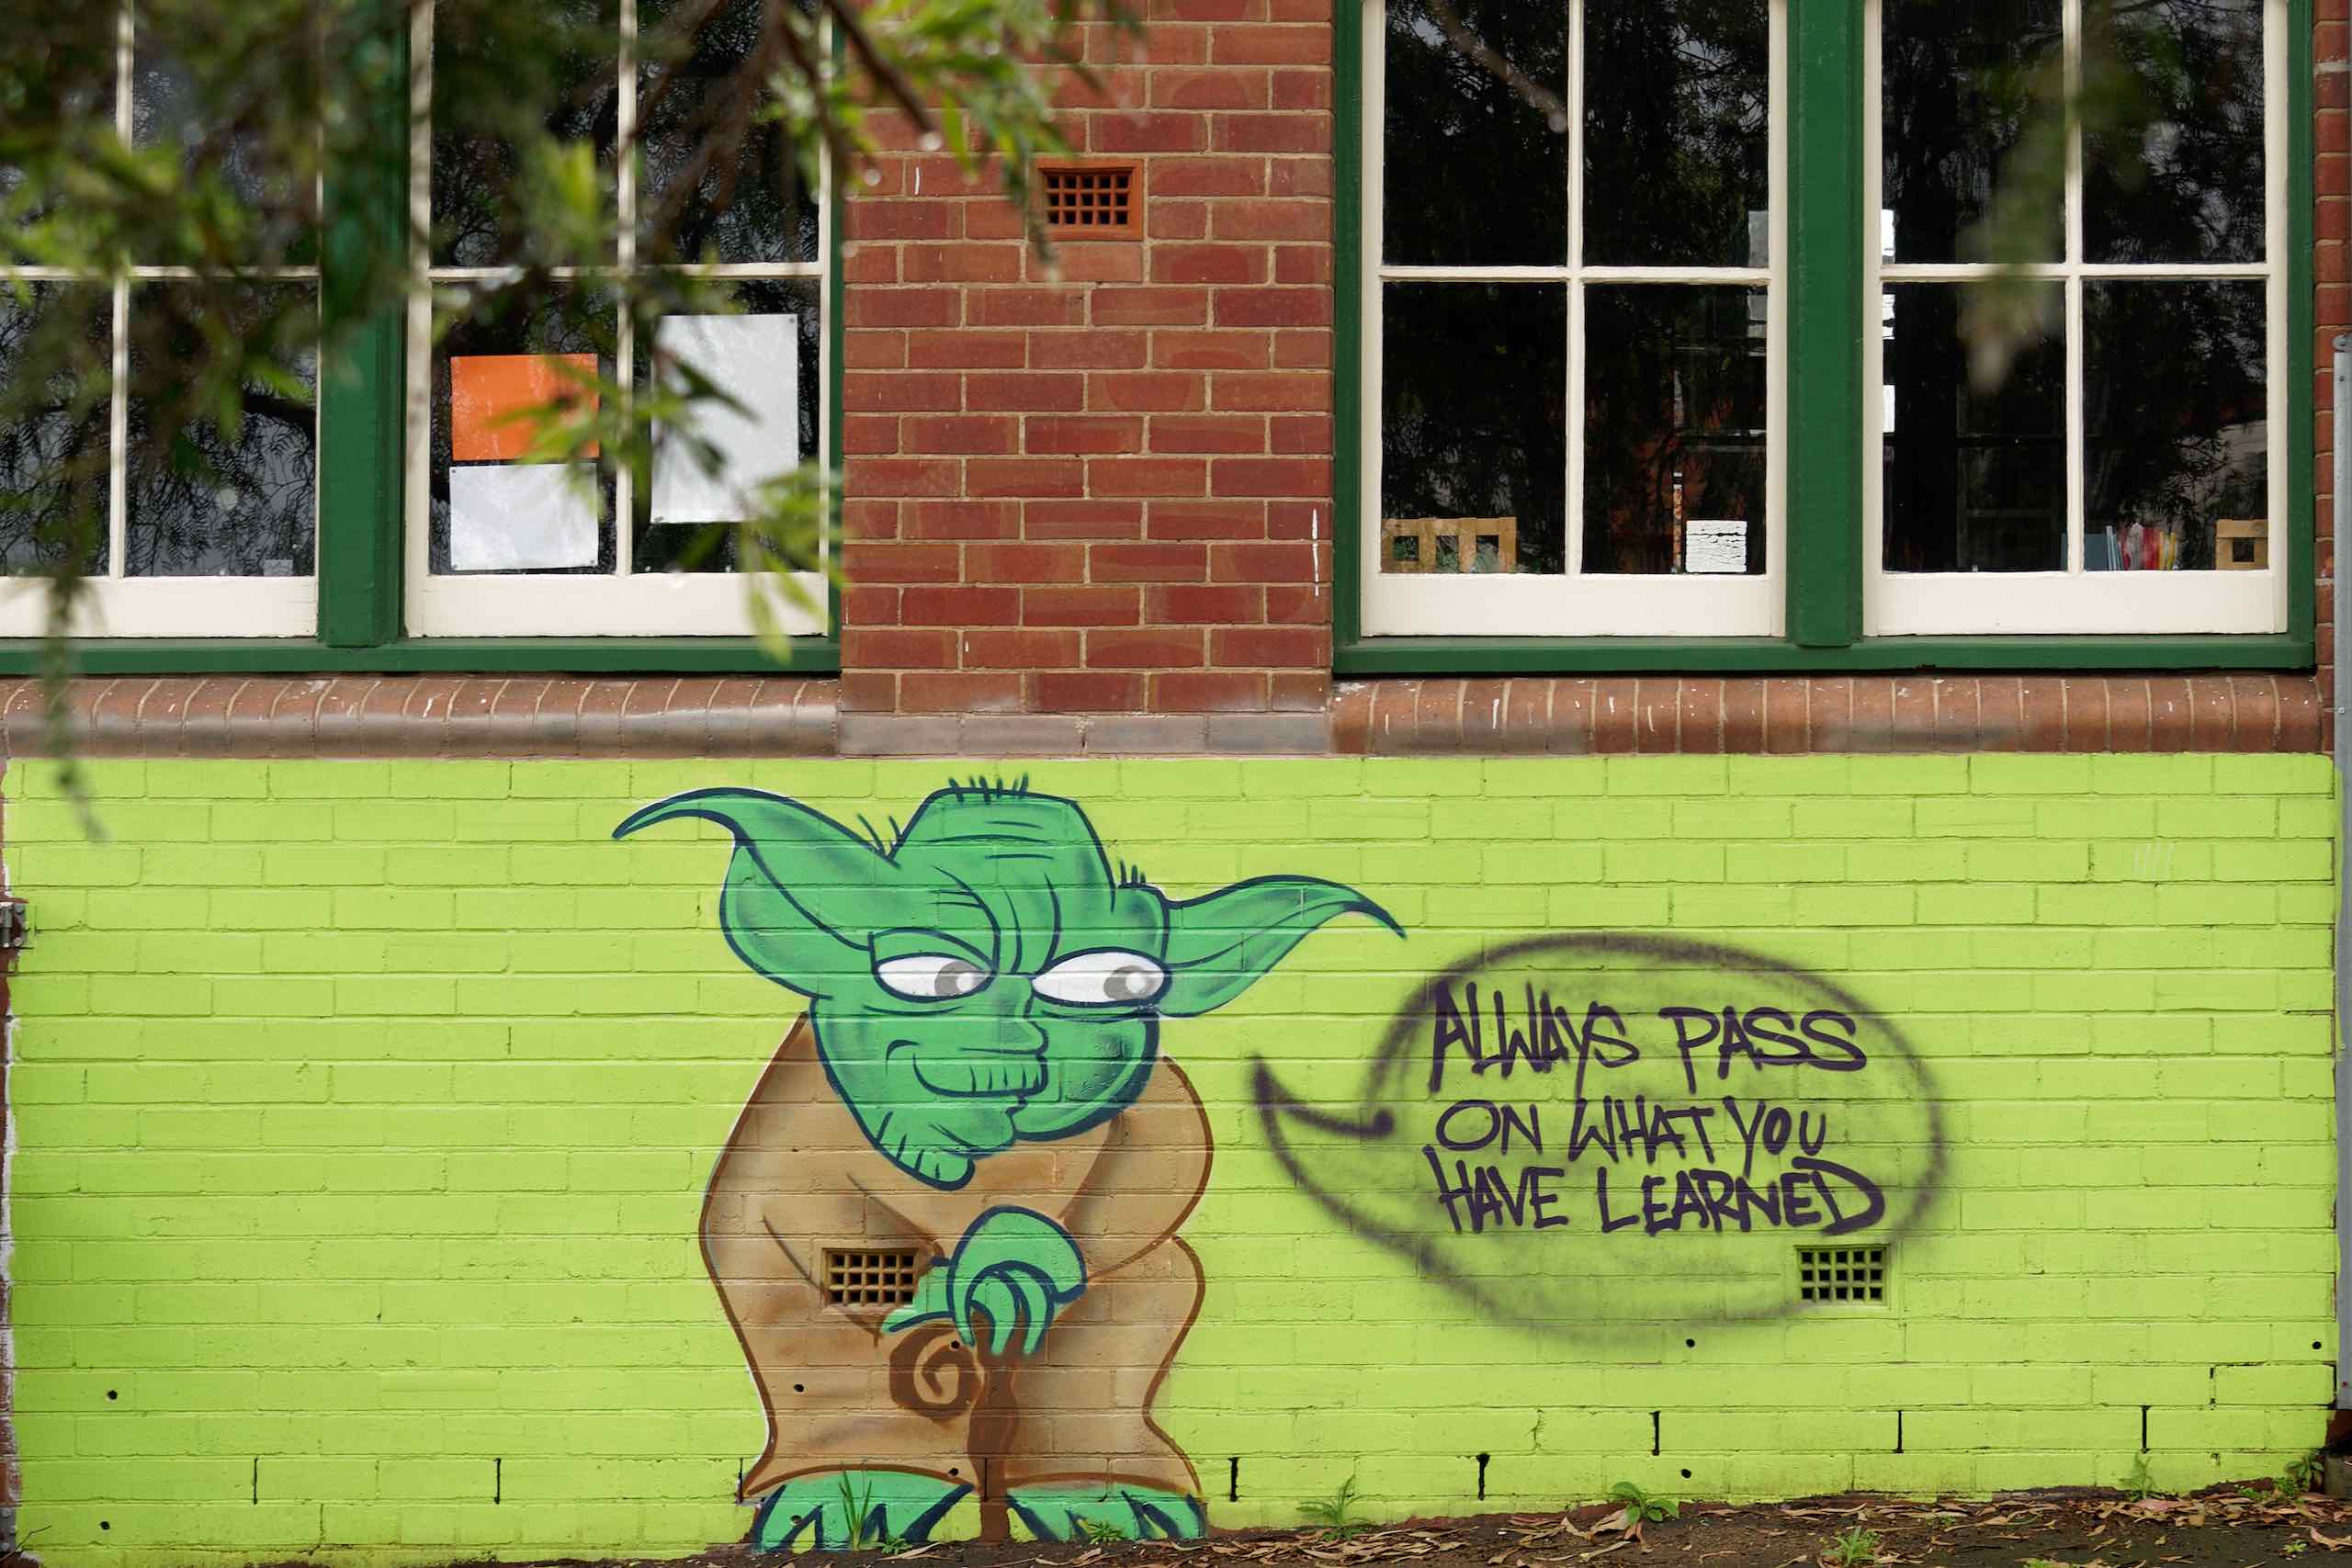 ALWAYS PASS
ON WHAT YOU
HAVE LEARNED